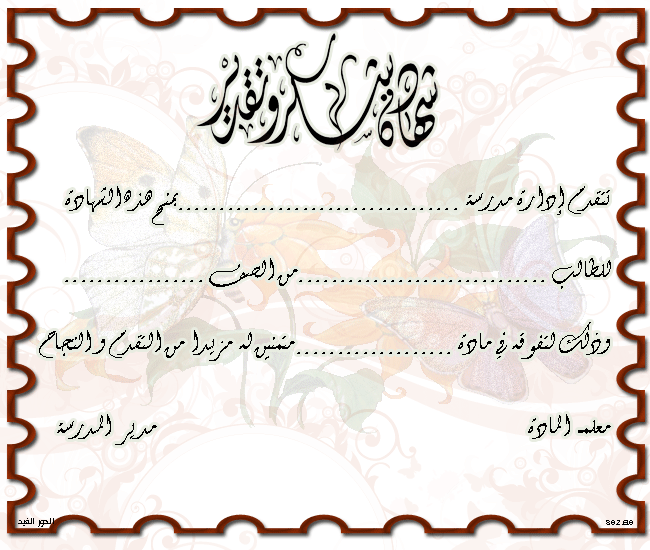 شهادة شكر وتقدير
تتقدم إدارة مدرسة ..................................بمنح هذه الشهادة
للطالب ..............................من الصف .................
وذلك لتفوقه في مادة ...................متمنين له مزيدا من التقدم والنجاح
معلمـ المادة
مدير المدرسة